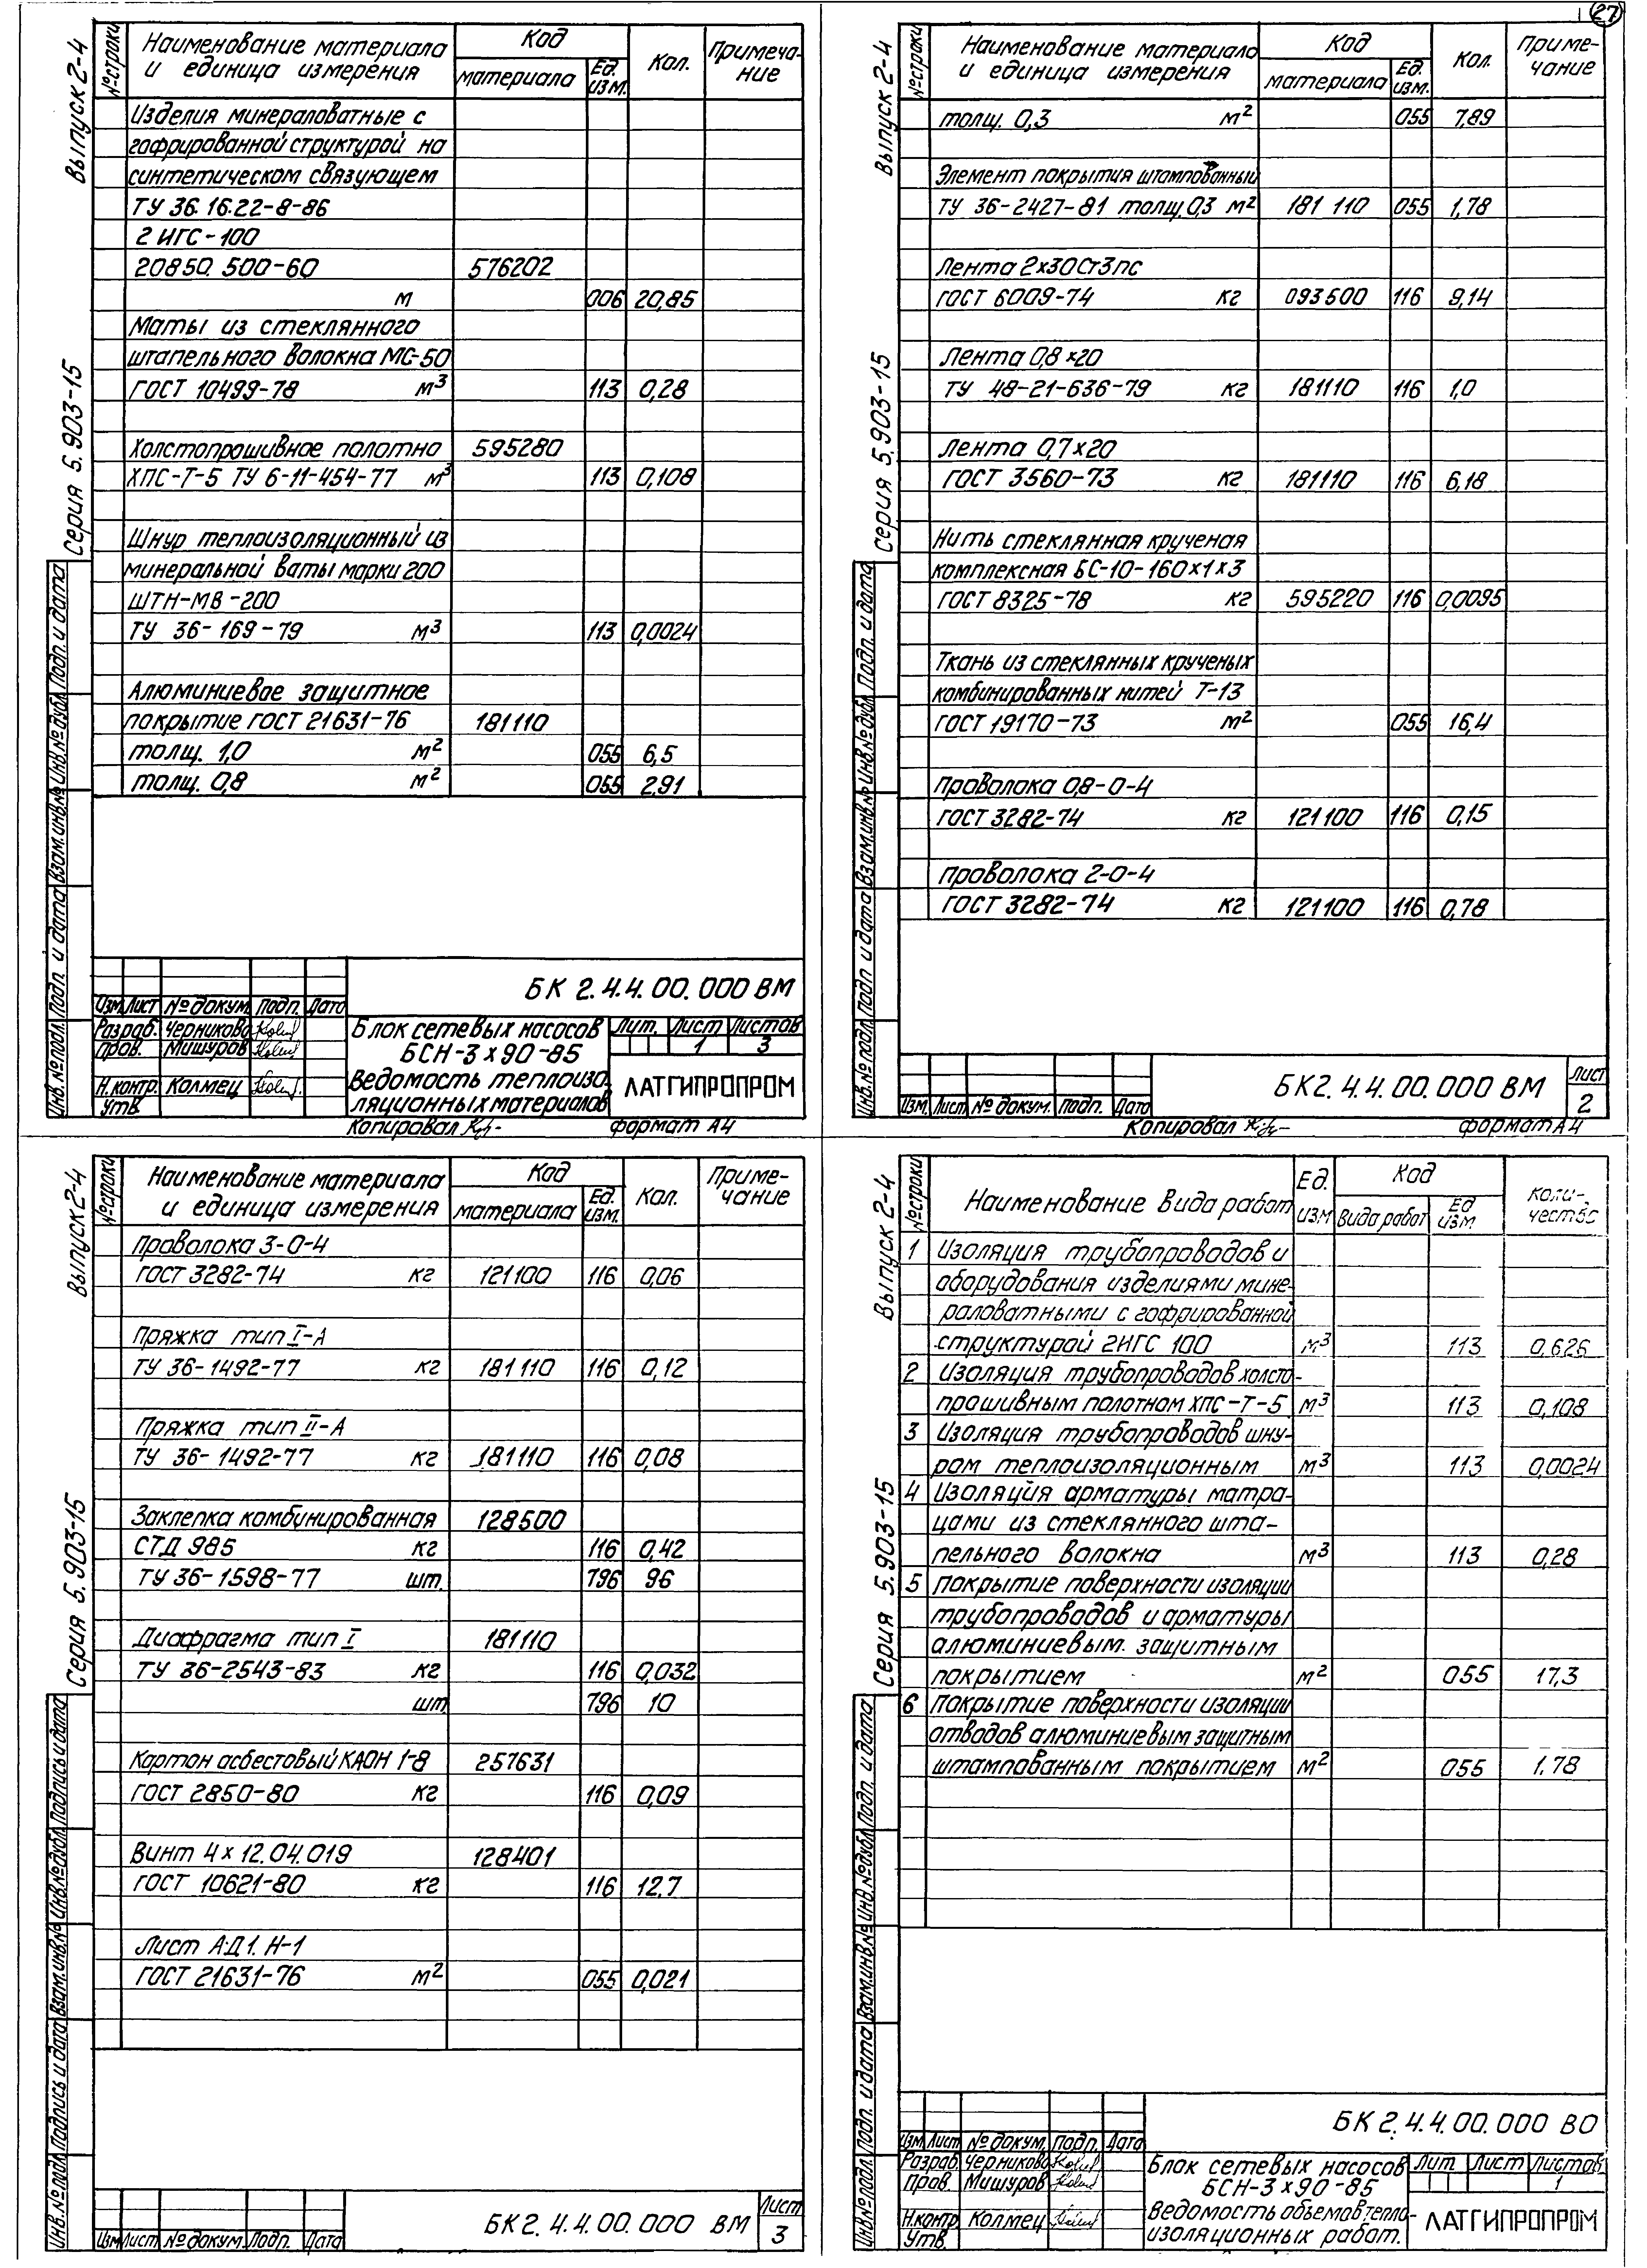 27
Выпуск 2-4
Серия 5.903-15
№ строки
Наименование материала и единица измерения
Код
материала
Ед. изм.
Кол.
Примечание
Изделия минераловатные с
гофрированной структурой на
синтетическом связующем
ТУ 36.16.22-8-86
2 ИГС-100
20850.500-60 576202
м 006 20,85
Маты из стеклянного
штапельного волокна МС-50
ГОСТ 10499-78 м³ 113 0,28
Холстопрошивное полотно 595280
ХПС-Т-5 ТУ 6-11-454-77 м³ 113 0,108
Шнур теплоизоляционный из
минеральной ваты марки 200
ШТН-МВ-200
ТУ 36-169-79 м³ 113 0,0024
Алюминиевое защитное
покрытие ГОСТ 21631-76 181110
толщ. 1,0 м² 055 6,5
толщ. 0,8 м² 055 2.91
Инв.№ подл. Подп. и дата Взам.инв.№ Инв.№ дубл. Подп. и дата
БК 2.4.4.00.000 ВМ
Изм Лист № докум. Подп. Дата
Разраб. Черникова
Пров. Мишуров
Н.контр. Колмец
Утв.
Блок сетевых насосов
БСН-3х90-85
Ведомость теплоизо-
ляционных материалов
Лит. Лист Листов
1 3
ЛАТГИПРОПРОМ
Копировал формат А4
Выпуск 2-4
Серия 5.903-15
№ строки
Наименование материала и единица измерения
Код
материала
Ед. изм.
Кол.
Приме-
чание
толщ. 0,3 м² 055 7,89
Элемент покрытия штампованный
ТУ 36-2427-81 толщ. 0,3 м² 181 110 055 1,78
Лента 2х30Ст3пс
ГОСТ 6009-74 кг 093500 116 9,14
Лента 0,8х20
ТУ 48-21-636-79 кг 181110 116 1,0
Лента 0,7х20
ГОСТ 3560-73 кг 181110 116 6,18
Нить стеклянная крученая
комплексная БС-10-160х1х3
ГОСТ 8325-78 кг 595220 116 0,0095
Ткань из стеклянных крученых
комбинированных нитей Т-13
ГОСТ 19170-73 м² 055 16,4
Проволока 0,8-0-4
ГОСТ 3282-74 кг 121100 116 0,15
Проволока 2-0-4
ГОСТ 3282-74 кг 121100 116 0,78
Инв.№ подл. Подп и дата Взам.инв.№ Инв.№ дубл. Подп. и дата
Изм. Лист № докум. Подп. Дата
БК 2.4.4.00.000 ВМ
Лист
2
Копировал формат А4
Выпуск 2-4
Серия 5.903-15
№ строки
Наименование материала
и единица измерения
Код
материала
Ед. изм.
Кол.
Приме-
чание
Проволока 3-0-4
ГОСТ 3282-74 кг 121100 116 0,06
Пряжка тип I-А
ТУ 36-1492-77 кг 181110 116 0,12
Пряжка тип II-А
ТУ 36-1492-77 кг 181110 116 0,08
Заклепка комбинированная 128500
СТД 985 кг 116 0,42
ТУ 36-1598-77 шт. 796 96
Диафрагма тип I 181110
ТУ 36-2543-83 кг 116 0,032
шт 796 10
Картон асбестовый КАОН 1-8 257631
ГОСТ 2850-80 кг 116 0,09
Винт 4х12.04.019 128401
ГОСТ 10621-80 кг 116 12,7
Лист АД1.Н-1
ГОСТ 21631-76 м² 055 0,021
Инв.№ подл. Подпись и дата Взам.инв.№ Инв.№ дубл. Подпись и дата
Изм Лист № докум. Подп. Дата
БК 2.4.4.00.000 ВМ
Лист
3
Выпуск 2-4
Серия 5.903-15
№ строки
Наименование вида работ
Ед. изм
Код
вида работ
Ед изм.
Коли-
чество
1 Изоляция трубопроводов и
оборудования изделиями мине-
раловатными с гофрированной
структурой 2ИГС 100 м³ 113 0,626
2 Изоляция трубопроводов холсто-
прошивным полотном ХПС-Т-5 м³ 113 0,108
3 Изоляция трубопроводов шну-
ром теплоизоляционным м³ 113 0,0024
4 Изоляция арматуры матра-
цами из стеклянного шта-
пельного волокна м³ 113 0,28
5 Покрытие поверхности изоляции
трубопроводов и арматуры
алюминиевым защитным
покрытием м² 055 17,3
6 Покрытие поверхности изоляции
отводов алюминиевым защитным
штампованным покрытием м² 055 1.78
Инв.№ подл. Подп. и дата Взам.инв.№ Инв.№ дубл. Подп. и дата
БК 2.4.4.00.000 ВО
Изм Лист № докум. Подп. Дата
Разраб. Черникова
Пров. Мишуров
Н.контр. Колмец
Утв.
Блок сетевых насосов
БСН-3х90-85
Ведомость объемов тепло-
изоляционных работ.
Лит Лист Листов
1
ЛАТГИПРОПРОМ